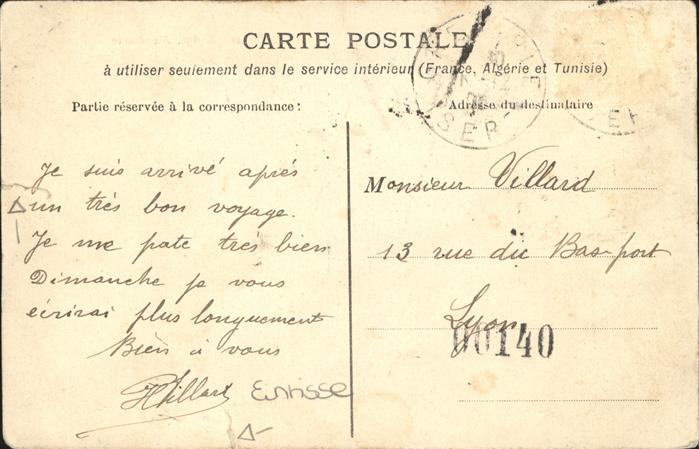 CARTE POSTALE
à utiliser seulement dans le service intérieur (France, Algérie et Tunisie)
Partie réservée à la correspondance :
Adresse du destinataire
Je suis arrivé après
un très bon voyage.
Je me pate très bien
Dimanche je vous
écrirai plus longuement
Bien à vous
HVillard
Entisse
Monsieur Villard
13 rue du Bas-port
Lyon
00140
ISERE